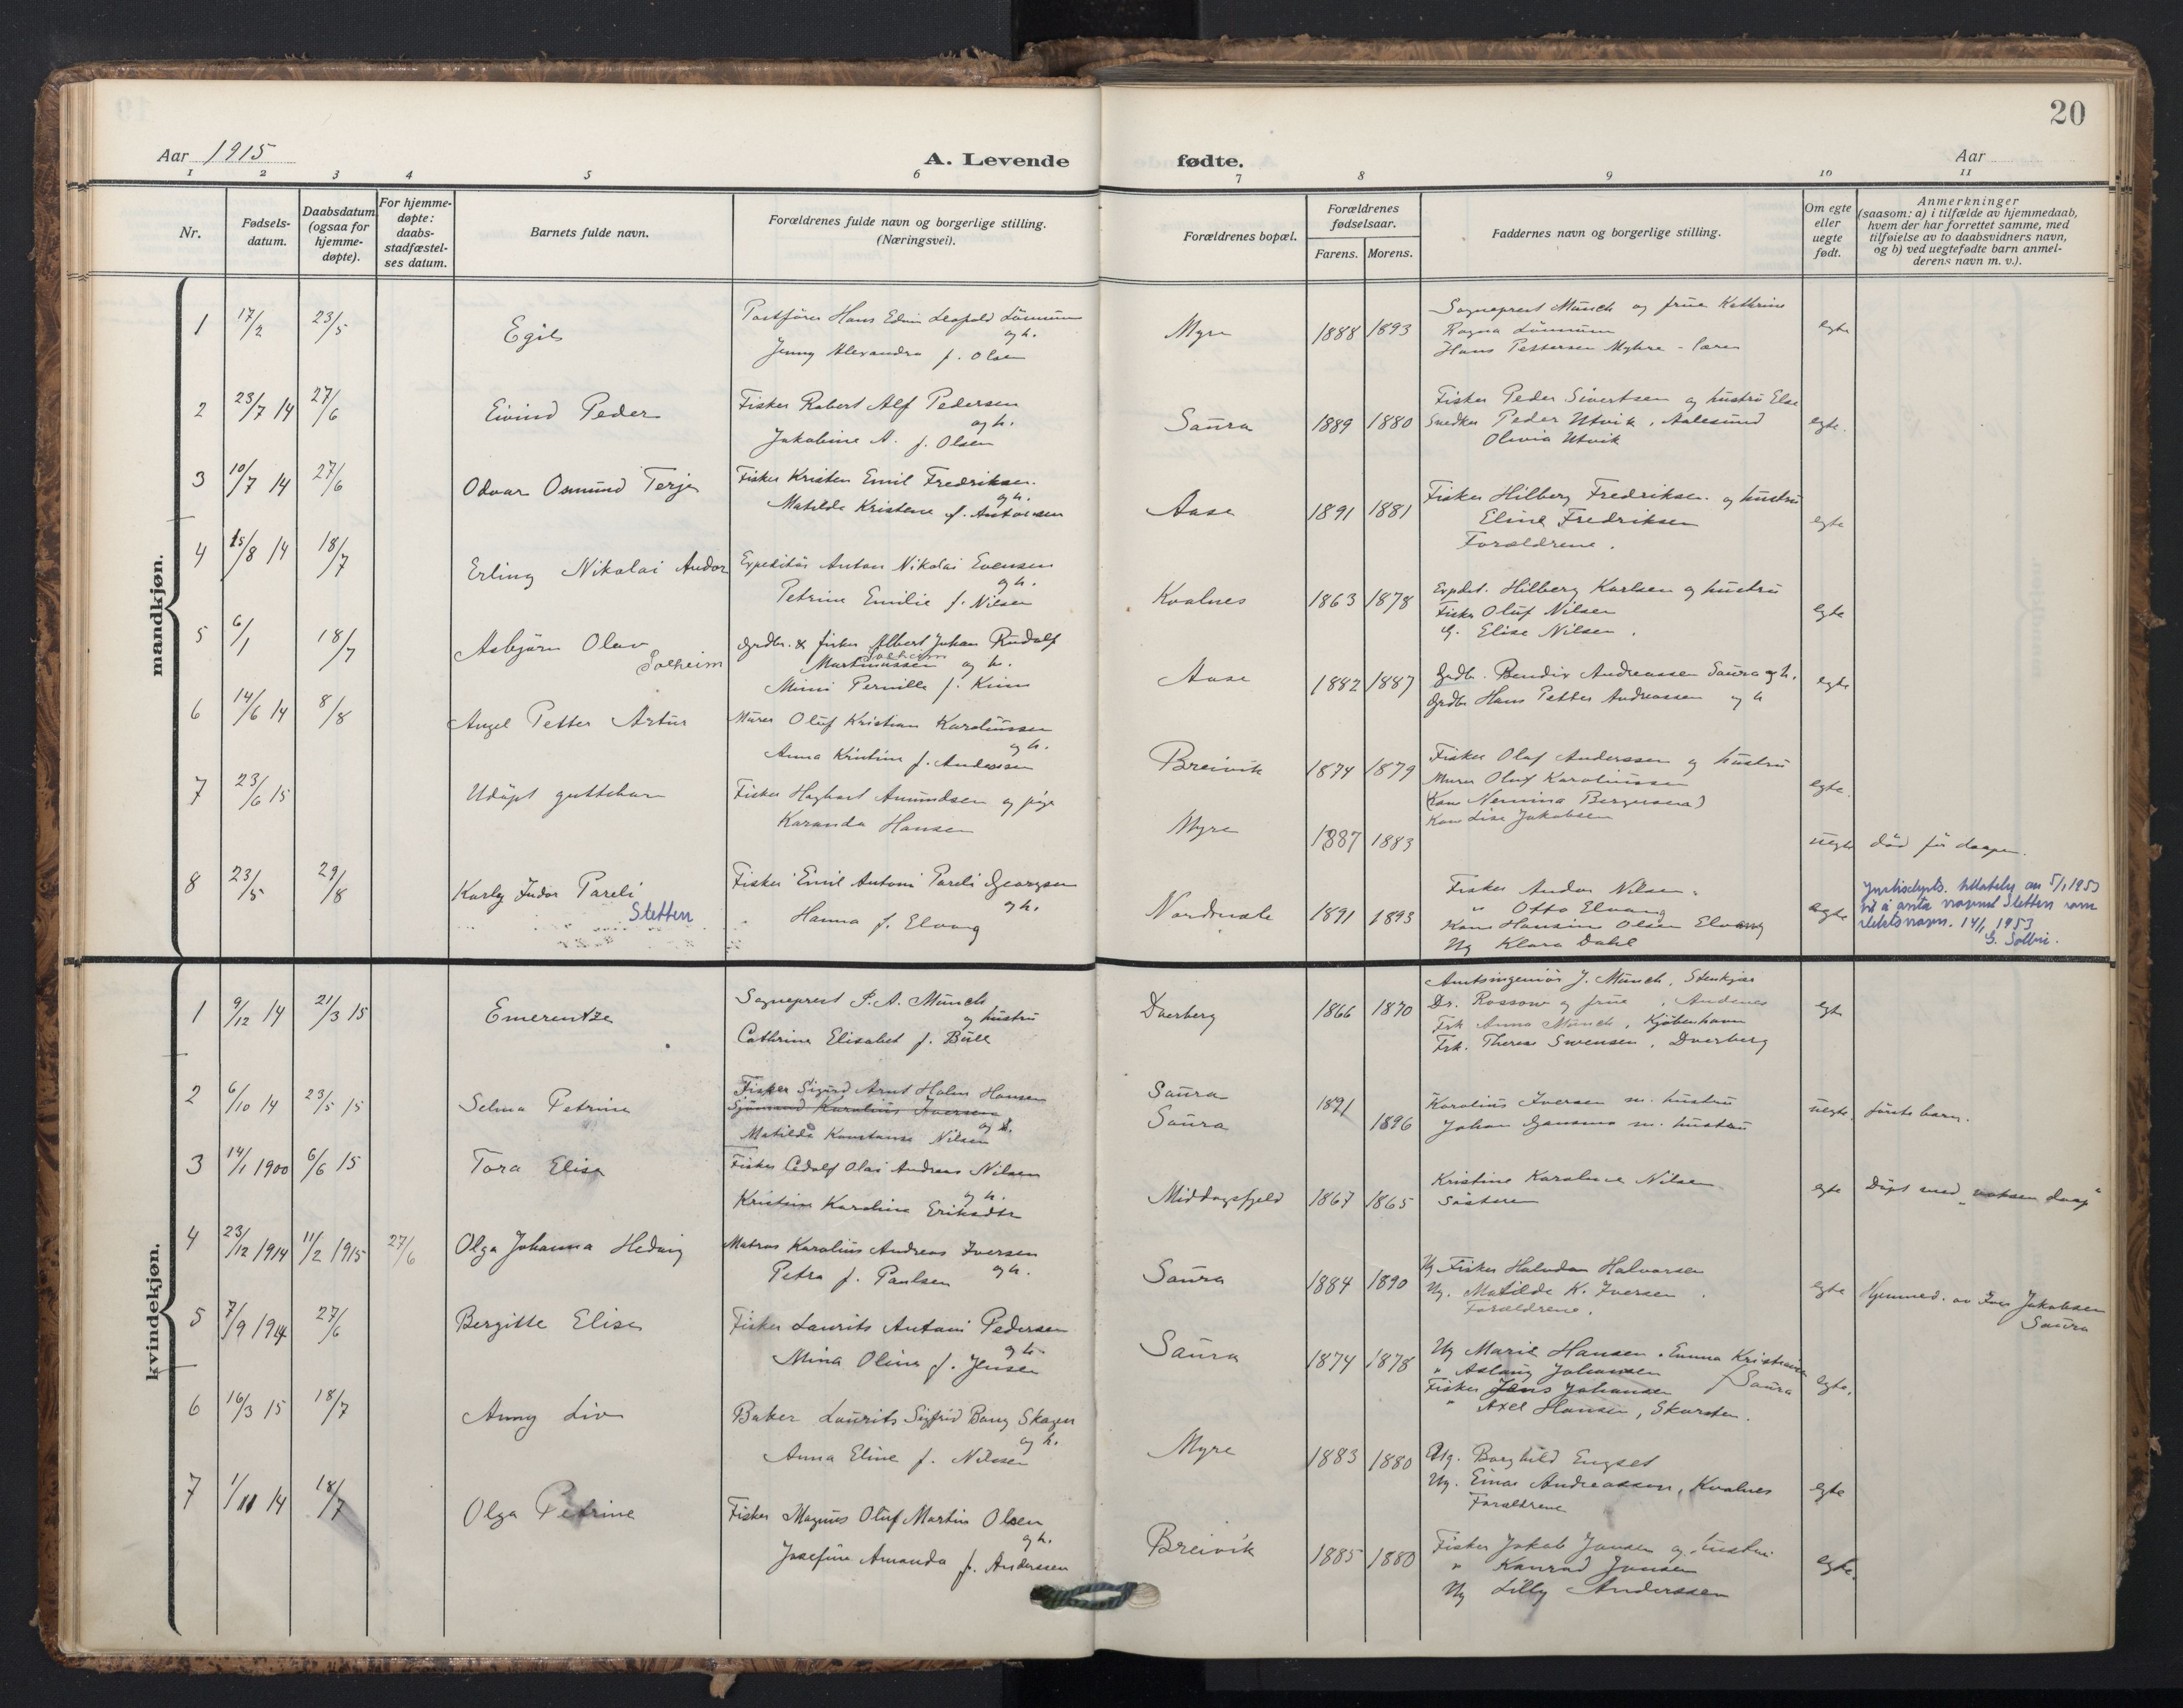 20
Aar 1915
A. Levende
fødte.
Aar
1 2 3 4 5 6 7 8 9 10 11
Nr.
Fødsels-
datum.
Daabsdatum
(ogsaa for
hjemme-
døpte).
For hjemme-
døpte:
daabs-
stadfæstel-
ses datum.
Barnets fulde navn.
Forældrenes fulde navn og borgerlige stilling.
(Næringsvei).
Forældrenes bopæl.
Forældrenes
fødselsaar.
Farens. Morens.
Faddernes navn og borgerlige stilling.
Om egte
eller
uegte
født.
Anmerkninger
(saasom: a) i tilfælde av hjemmedaab,
hvem der har forrettet samme, med
tilføielse av to daabsvidners navn,
og b) ved uegtefødte barn anmel-
derens navn m. v.).
mandkjøn.
1 17/2 23/5 Egil
Postfører Hans Edvin Leopold Lönnum
og h.
Jenny Alexandra f. Olsen
Myre 1888 1893
Sogneprest Münch og frue Kathrine
Ragna Lönnum
Hans Pettersen Myhre - lærer
egte
2 23/7 14 27/6 Eivind Peder
Fisker Robert Alf Pedersen
og h.
Jakobine A. f. Olsen
Saura 1889 1880
Fisker Peder Sivertsen og hustru Else
Snedker Peder Utvik, Aalesund
Olivia Utvik
egte.
3 10/7 14 27/6 Odvar Osmund Terje
Fisker Kristen Emil Fredriksen.
og h.
Matilde Kristene f. Antonsen
Aase 1891 1881
Fisker Hilberg Fredriksen. og hustru
Eline Fredriksen
Forældrene.
egte
4 15/8 14 18/7 Erling Nikolai Andor
Expeditör Anton Nikolai Evensen
og h.
Petrine Emilie f. Nilsen
Kvalnes 1863 1878
Expdet. Hilberg Karlsen og hustru
Fisker Oluf Nilsen
G. Elise Nilsen.
egte
5 6/1 18/7 Asbjørn Olav
Solheim
Grdbr. & fisker Albert Johan Rudolf
Solheim
Martinussen og h.
Mimi Pernille f. Kim
Aase 1882 1887
Grdbr. Bendix Andreassen Saura og h.
Grdbr Hans Petter Andreassen og h
egte
6 14/6 14 8/8 Angel Petter Artur
Murer Oluf Kristian Karoliussen
og h.
Anna Kristine f. Anderssen
Breivik 1874 1879
Fisker Olaf Anderssen og hustru
Murer Oluf Karoliussen
(Kone Nennina Bergersena)
Kone Lise Jakobsen
egte.
7 23/6 15 Udöpt guttebarn
Fisker Hagbart Amundsen og pige
Karanda Hansen
Myre 1887 1883
uegte död för daapen.
8 23/5 29/8 Karly Indor Pareli
Sletten
Fisker Emil Antoni Pareli Georgsen
og h.
Hanna f. Elvang
Nordmele 1891 1893
Fisker Andor Nilsen.
" Otto Elvang
Kone Hansine Olsen Elvang
Ug Klara Dahl
egte
Justisdepts. tillatelse av 5/1 1953
til å anta navnet Sletten som
slektsnavn. 14/1 1953
G. Solbu.
kvindekjøn.
1 9/12 14 21/3 15 Emerentze
Sogneprest P. A. Münch
og hustru
Cathrine Elisabet f. Bull
Dverberg 1866 1870
Amtsingeniör J. Münch, Stenkjær
Dr. Rossow og frue, Andenes
Frk Anna Münch, Kjöbenhavn
Frk. Therese Swensen, Dverberg
egte
2 6/10 14 23/5 15 Selma Petrine
Fisker Sigurd Arnt Holm Hansen
Sjömand Karolius Iversen
og
Matilde Konstanse Nilsen
Saura
Saura
1891
1896
Karolius Iversen m. hustru
Johan Gausmo m. hustru
uegte. förste barn.
3 14/1 1900 6/6 15 Tora Elise
Fisker Adolf Olai Andreas Nilsen
og h.
Kristine Karoline Eriksdtr
Middagsfjeld 1867 1865
Kristine Karoline Nilsen
Söstere
egte Döpt med "voksen daap"
4 23/12 1914 11/2 1915 27/6 Olga Johanna Hedvig
Matros Karolius Andreas Iversen
og h.
Petra f. Paulsen
Saura 1884 1890
Ug Fisker Halvdan Halvorsen
Ug. Matilde K. Iversen.
Forældrene.
egte Hjemmed. av Iver Jakobsen
Saura
5 7/9 1914 27/6 Bergitte Elise
Fisker Laurits Antoni Pedersen
og h.
Mina Oline f. Jensen
Saura 1874 1878
Ug Marie Hansen. Emma Kristiansen
" Aslaug Johansen
Fisker Jens Johansen Saura
" Axel Hansen, Skarsten.
egte.
6 16/3 15 18/7 Anny Liv
Baker Laurits Sigfrid Bang Skagen
og h.
Anna Eline f. Nilssen
Myre 1883 1880
Ug. Borghild Engset
Ug. Einar Andreassen, Kvalnes
Forældrene
egte
7 1/11 14 18/7 Olga Petrine
Fisker Magnus Oluf Martin Olsen
og h.
Josefine Amanda f. Anderssen
Breivik 1885 1880
Fisker Jakob Jansen og hustru
" Konrad Jansen
Ug Lilly Anderssen
egte.